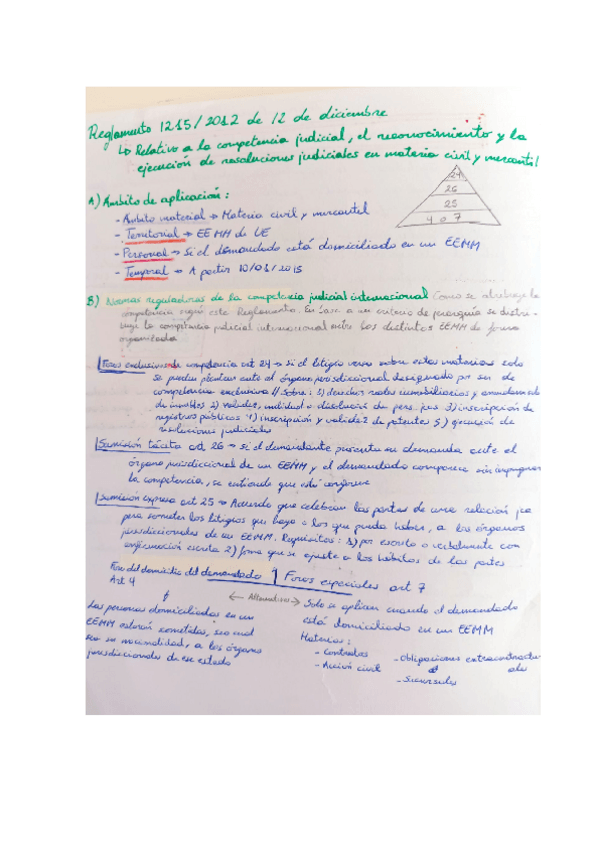 Reglamento 1215/2012 de 12 de diciembre
↳ Relativo a la competencia judicial, el reconocimiento y la
ejecución de resoluciones judiciales en materia civil y mercantil
24
26
25
4 o 7
A) Ámbito de aplicación:
- Ámbito material → Materia civil y mercantil
- Territorial → EEMM de UE
- Personal → Si el demandado está domiciliado en un EEMM
- Temporal → A partir 10/01/2015
B) Normas reguladoras de la competencia judicial internacional Como se distribuye la
competencia según este Reglamento. En base a un criterio de jerarquía se distri-
buye la competencia judicial internacional entre los distintos EEMM de forma
organizada
Foros exclusivos de competencia art 24 → si el litigio versa sobre estas materias solo
se pueden plantear ante el órgano jurisdiccional designado por ser de
competencia exclusiva // Sobre: 1) derechos reales inmobiliarios y arrendamiento
de inmuebles 2) validez, nulidad o disolución de pers. jcas 3) inscripción de
registros públicos 4) inscripción y validez de patentes 5) ejecución de
resoluciones judiciales
Sumisión tácita art. 26 → si el demandante presenta su demanda ante el
órgano jurisdiccional de un EEMM y el demandado comparece sin impugnar
la competencia, se entiende que está conforme
Sumisión expresa art 25 → Acuerdo que celebran las partes de una relación jca
para someter los litigios que haya o los que pueda haber, a los órganos
jurisdiccionales de un EEMM. Requisitos: 1) por escrito o verbalmente con
confirmación escrita 2) forma que se ajuste a los hábitos de las partes
Foro del domicilio del demandado
Art 4
Foros especiales art 7
← Alternativos →
Las personas domiciliadas en un
EEMM estarán sometidas, sea cual
sea su nacionalidad, a los órganos
jurisdiccionales de ese estado
Solo se aplican cuando el demandado
está domiciliado en un EEMM
Materias:
- Contratos
- Acción civil
- Obligaciones extracontractu
ales
- Sucursales